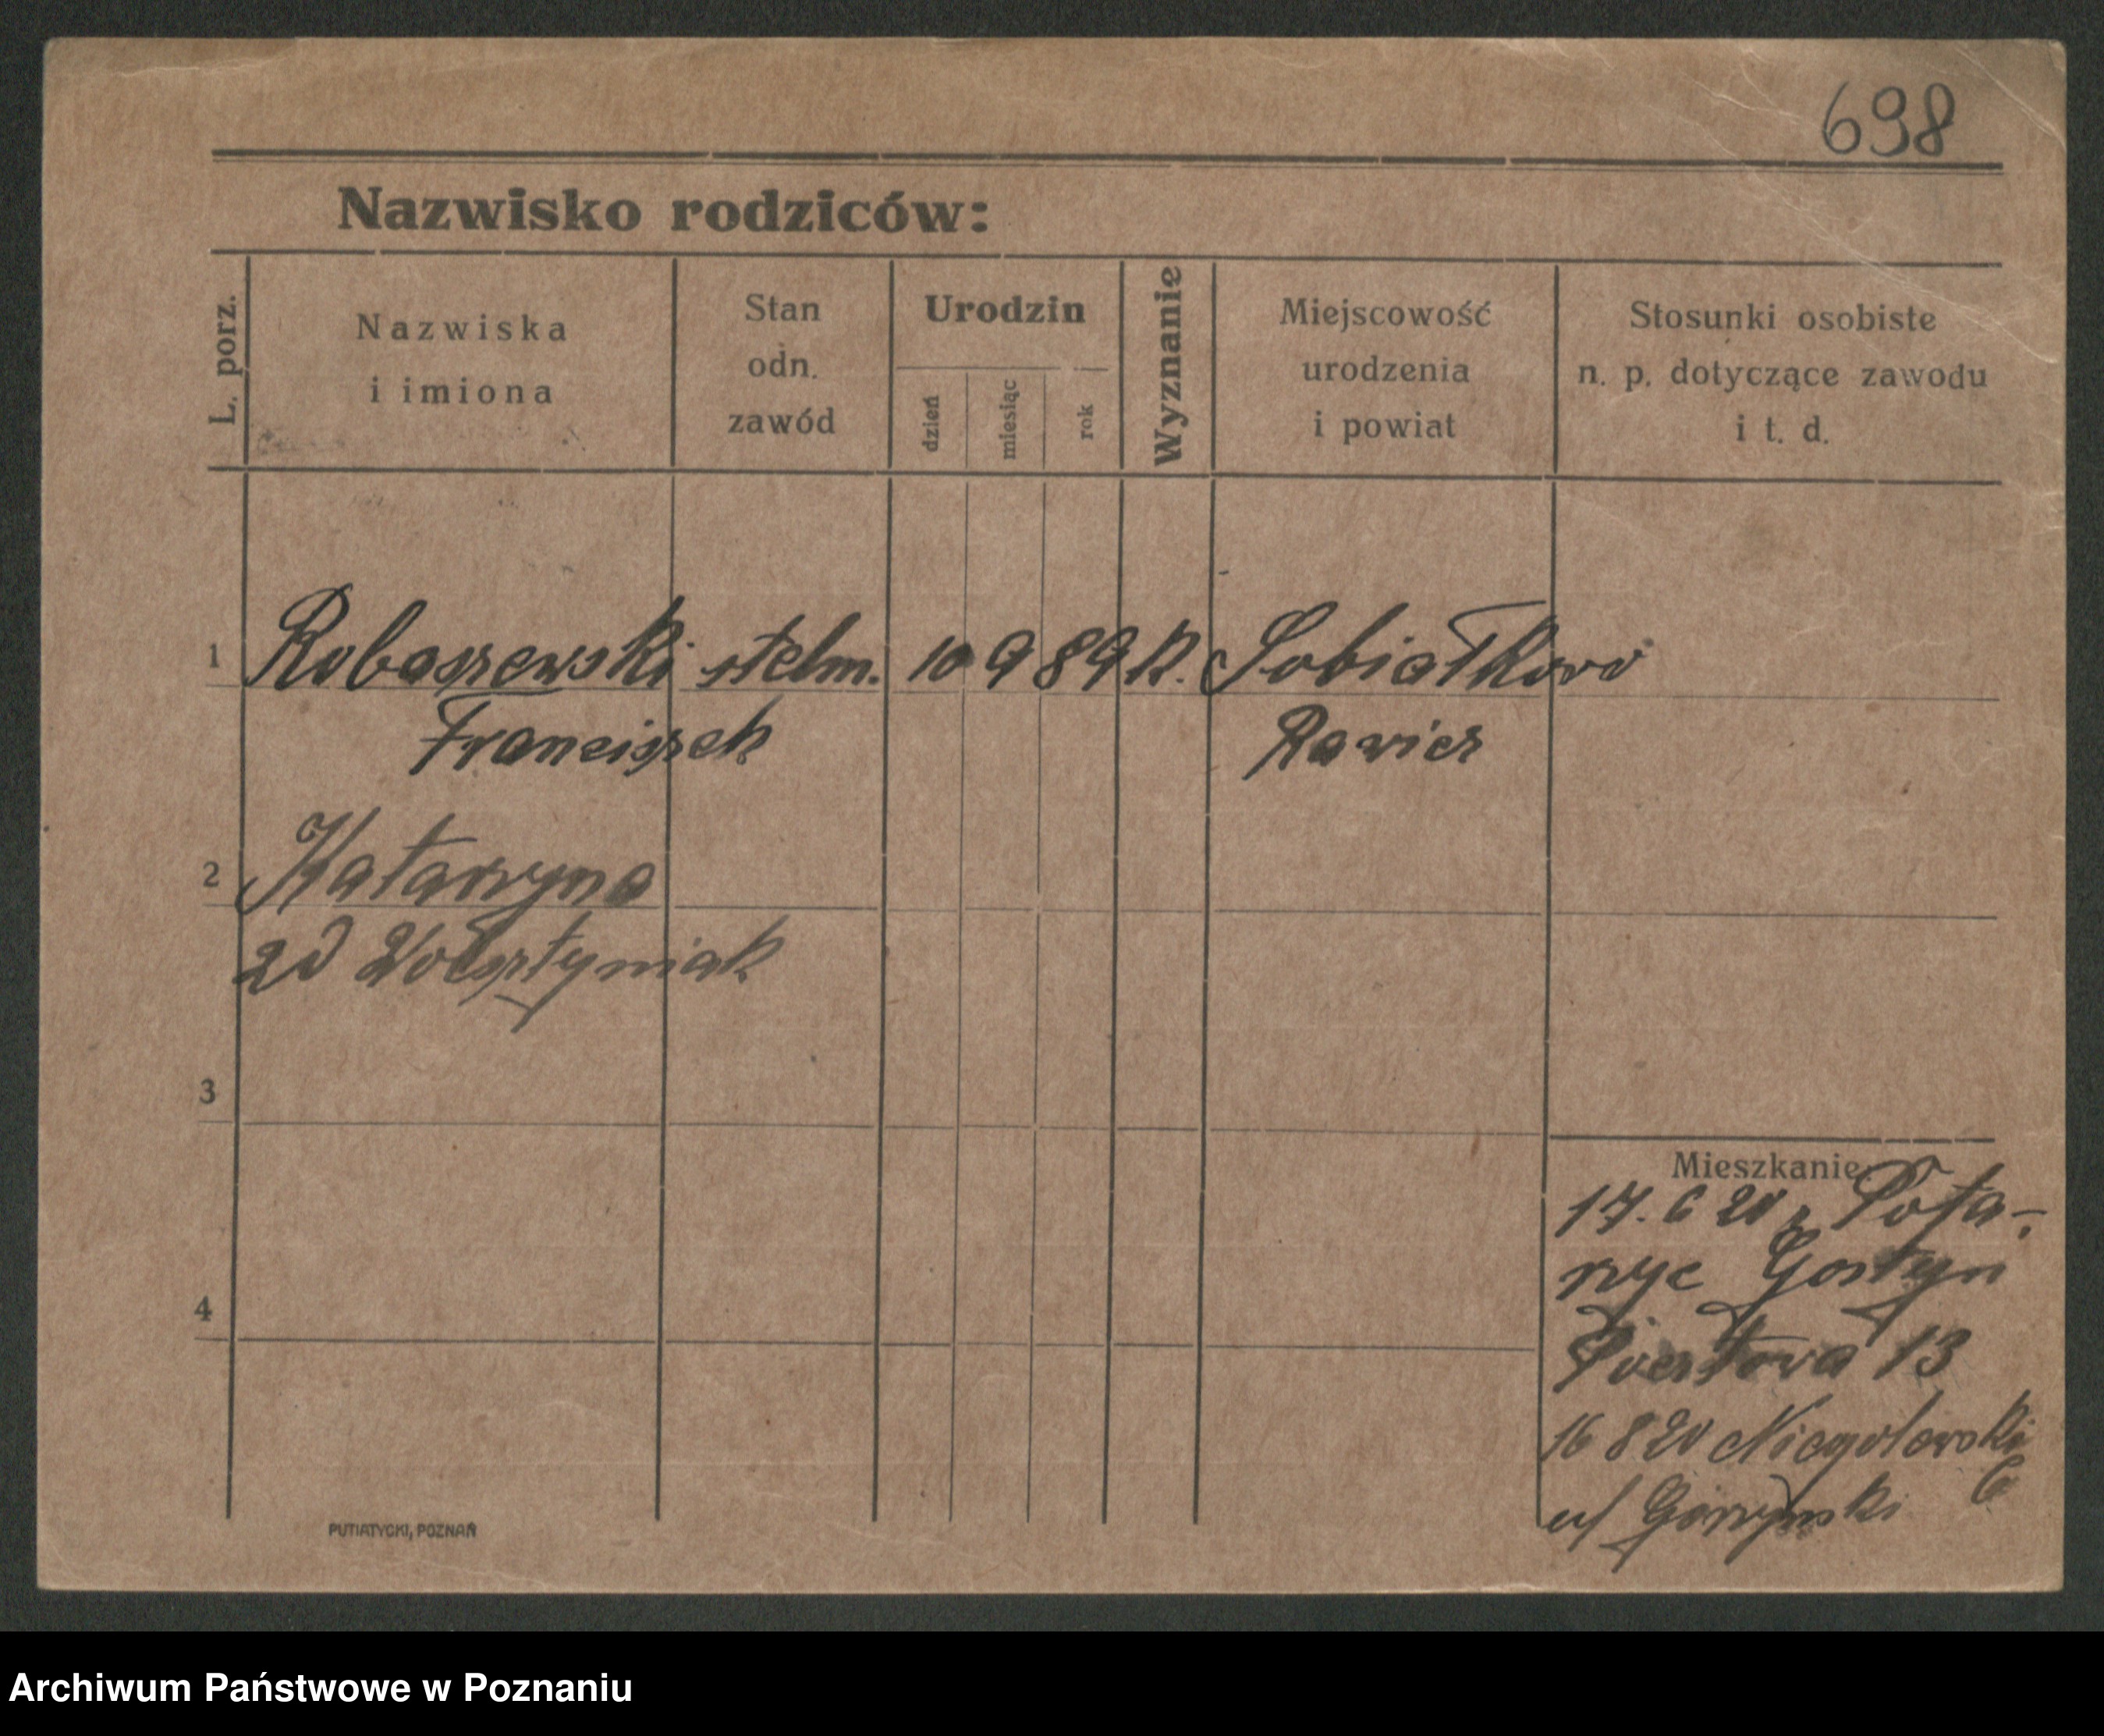 698
Nazwisko rodziców:
L. porz.
Nazwiska
i imiona
Stan
odn.
zawód
Urodzin
dzień
miesiąc
rok
Wyznanie
Miejscowość
urodzenia
i powiat
Stosunki osobiste
n. p. dotyczące zawodu
i t. d.
1 Robaszewski stelm. 10 9 89 k. Sobiałkowo
Franciszek Rawicz
2 Katarzyna
zd
3
4
Mieszkanie
17. 6 20 z Pota-
rzyc Gostyn
13
16 8 20 Niegolewski
u/ Górzyński 6
PUTIATYCKI, POZNAŃ
Archiwum Państwowe w Poznaniu